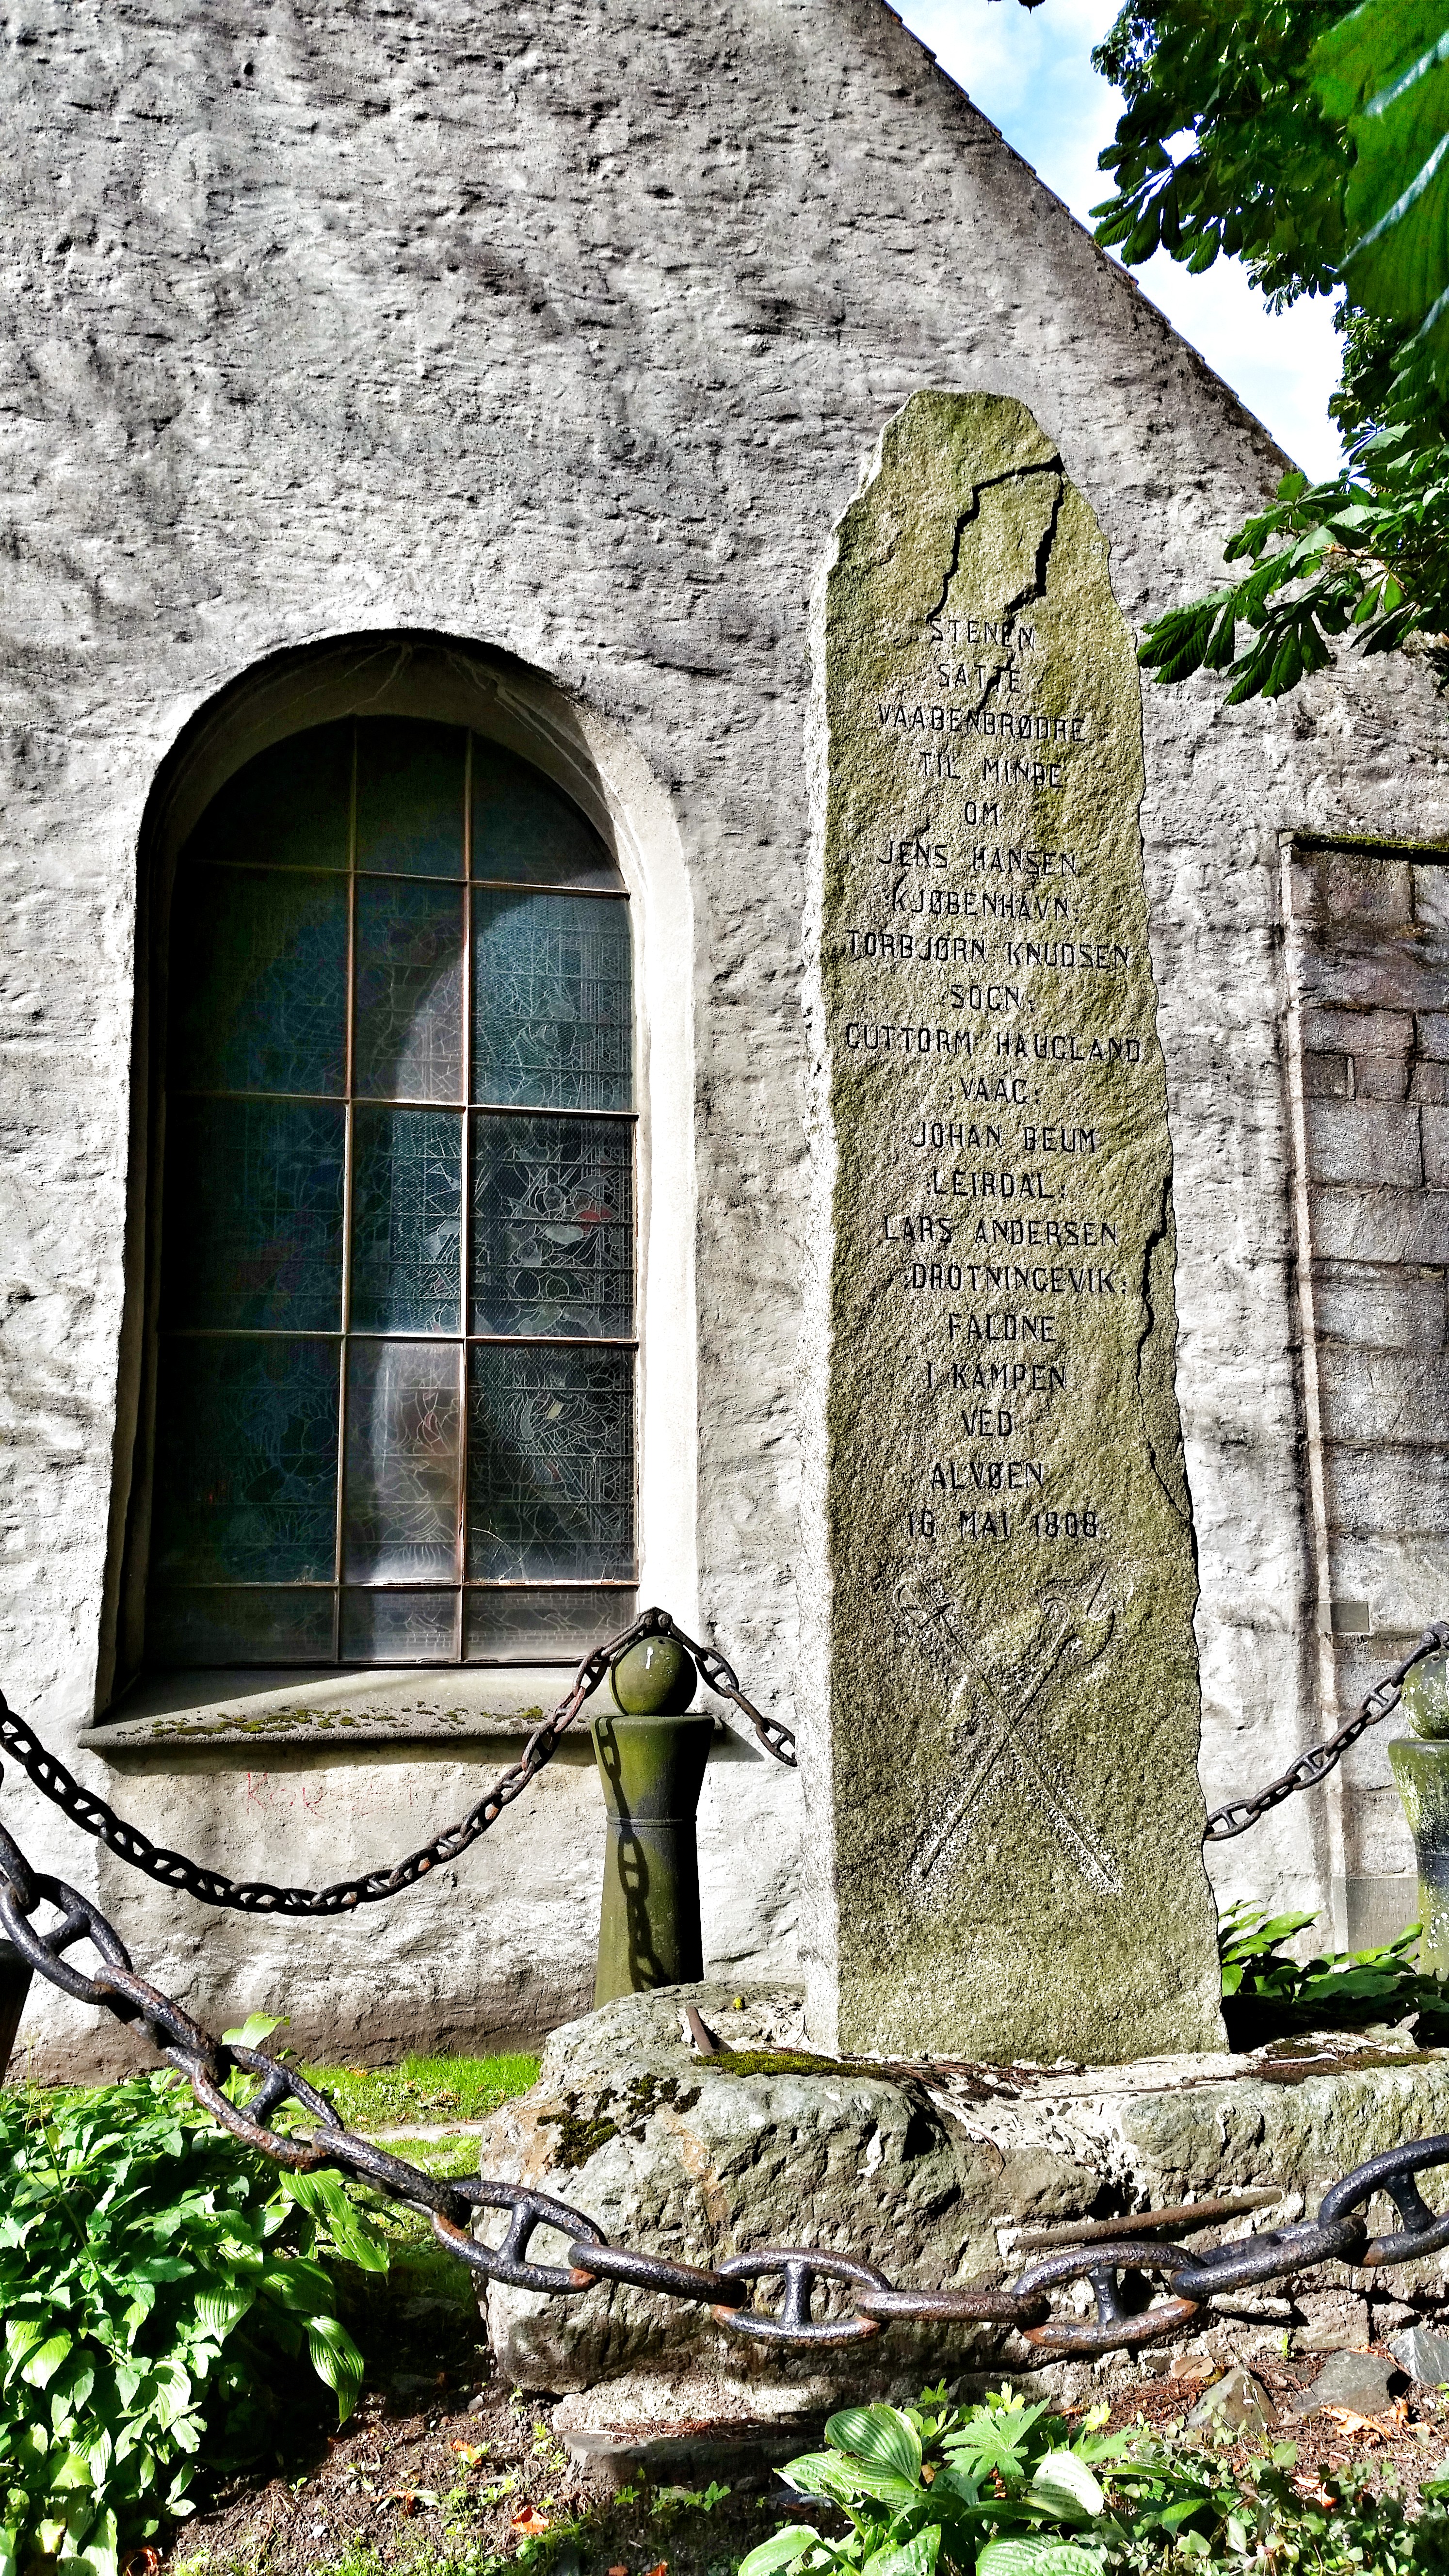 STENEN
SATTE
VAABENBRØDRE
TIL MINDE
OM
JENS HANSEN
:KJØBENHAVN:
TORBJØRN KNUDSEN
:SOGN:
GUTTORM HAUGLAND
:VAAG:
JOHAN BEUM
:LEIRDAL:
LARS ANDERSEN
:DROTNINGEVIK:
FALDNE
I KAMPEN
VED
ALVØEN
16 MAI 1808.